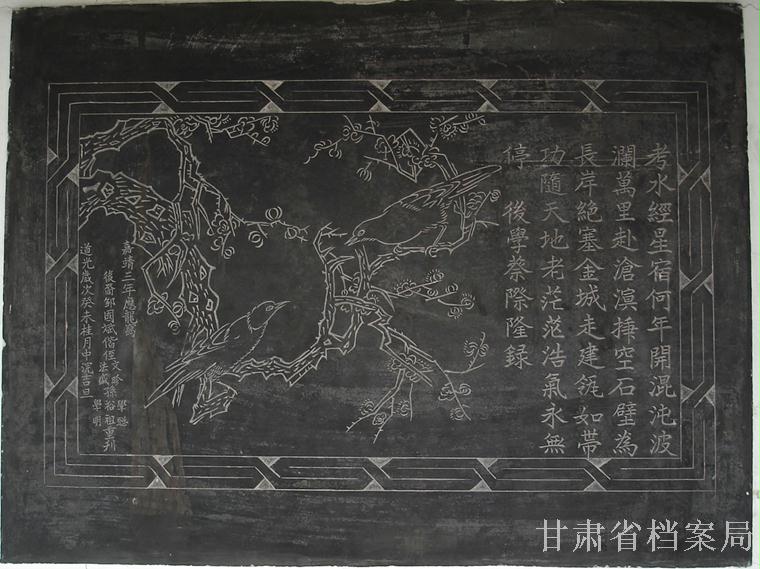 考水經星宿何年開混沌波
瀾萬里赴滄溟揷空石壁為
長岸絶塞金城走建瓴如帶
功隨天地老茫茫浩氣永無
停 後學蔡際隆錄
嘉靖三年應龍寫
後裔邹國斌偕侄文
法
孫裕祖重刋
學
學明
道光歲次癸未桂月中浣吉旦
甘肃省档案局